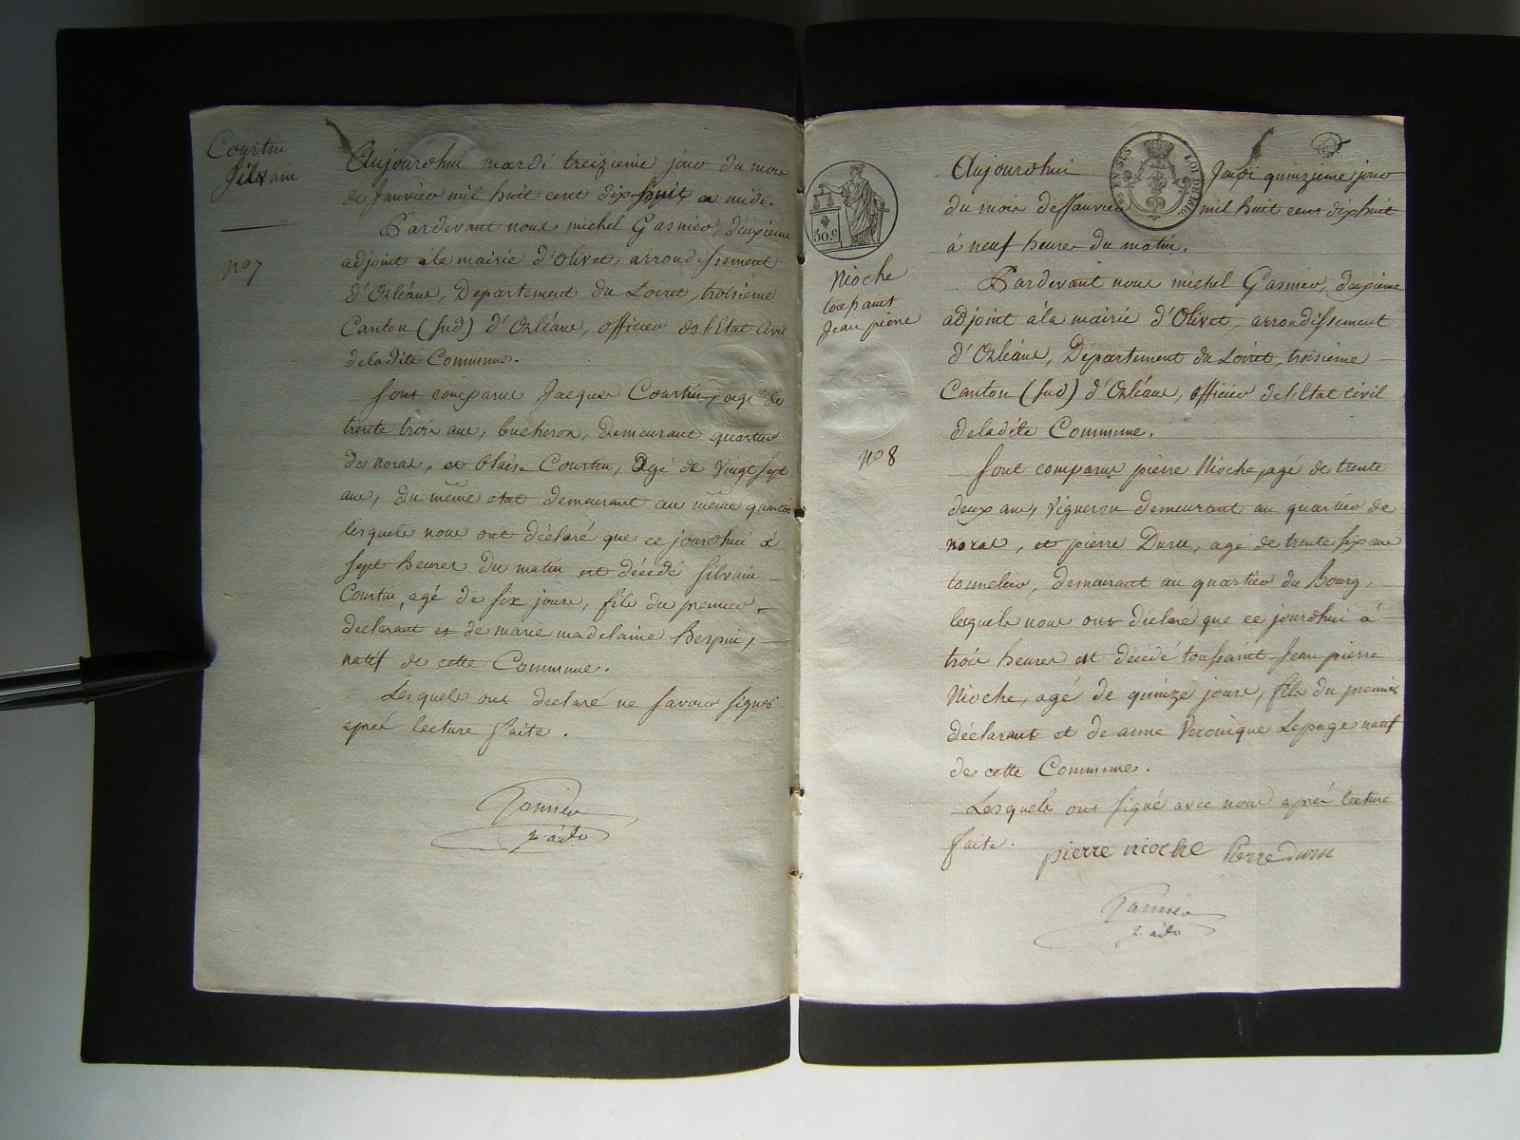 Courtin
Silvain
nº 7
Aujourdhui mardi treizieme jour du mois
de Janvier mil huit cent dix huit a midi.
Pardevant nous michel Gasnier, deuxieme
adjoint à la mairie d'Olivet, arrondissement
d'Orléans, Departement du Loiret, troisieme
Canton (sud) d'Orléans, officier de l'Etat Civil
deladite Commune.
Sont comparus Jacques Courtin, agé de
trente trois ans, bucheron, demeurant quartier
du noras, et blaise Courtin, agé de vingt sept
ans, du même etat demeurant au même quartier
lesquels nous ont déclaré que ce jourdhui à
sept heures du matin est décédé silvain
Courtin, agé de six jours, fils du premier
declarant et de marie madelaine herpin,
natif de cette Commune.
Lesquels ont declaré ne savoir signer
après lecture faite.
Gasnier
2. adjt
LOI DE
50.c
Nioche
toussaint
Jean pierre
nº 8
Aujourdhui Jeudi quinzieme jour
du mois de Janvier mil huit cent dix huit
à neuf heures du matin.
Pardevant nous michel Gasnier, deuxieme
adjoint à la mairie d'Olivet, arrondissement
d'Orléans, Département du Loiret, troisieme
Canton (sud) d'Orléans, officier de l'Etat Civil
deladite Commune.
Sont comparus pierre Nioche, agé de trente
deux ans, vigneron demeurant au quartier de
noras, et pierre Duru, agé de trente six ans
tonnelier, demeurant au quartier du Bourg,
lesquels nous ont déclaré que ce jourdhui à
trois heures est décédé toussaint Jean pierre
Nioche, agé de quinze jours, fils du premier
déclarant et de anne Veronique Lepage natif
de cette Commune.
Lesquels ont signé avec nous après lecture
faite.
pierre nioche Pierre Duru
Gasnier
2. adjt